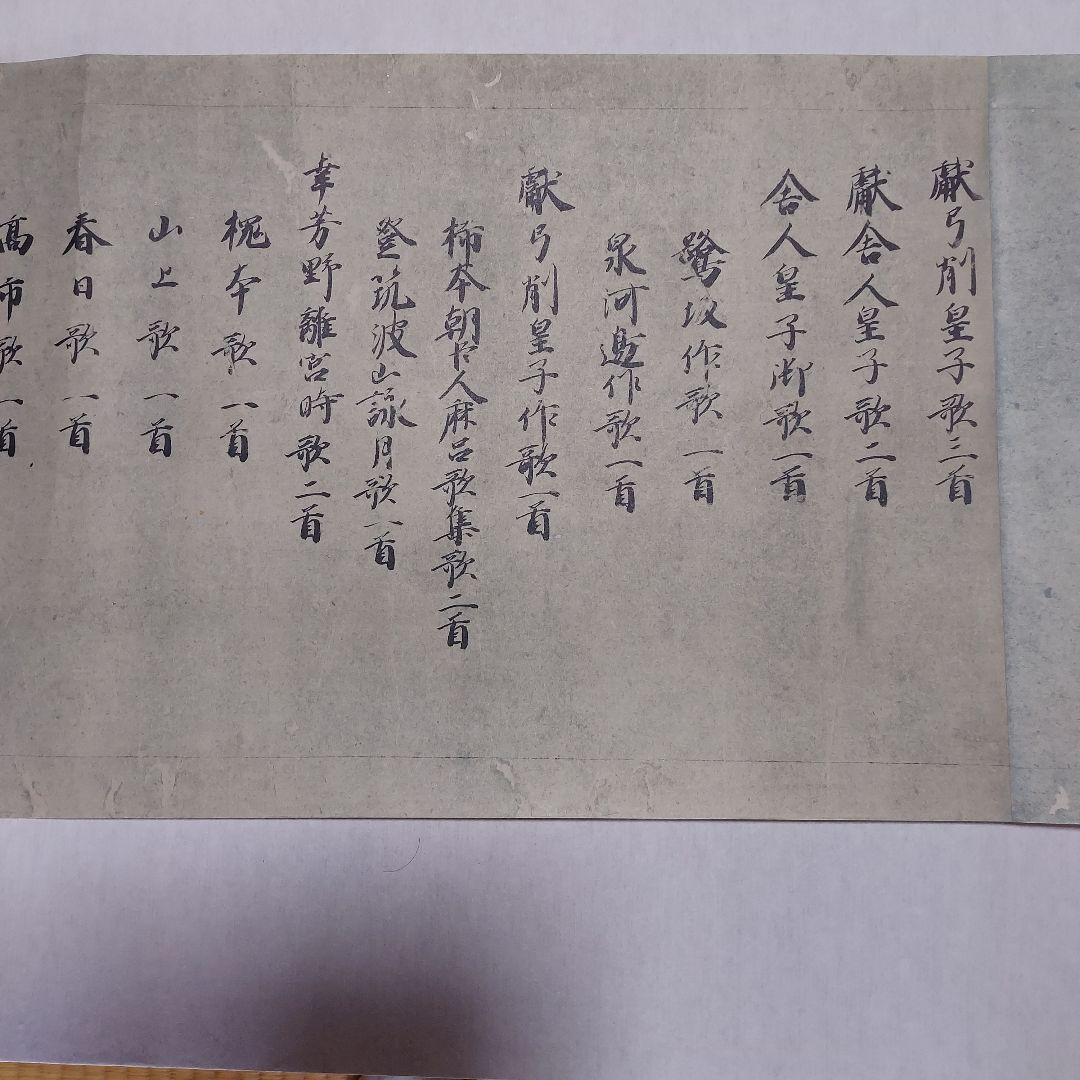 献弓削皇子歌三首
献舎人皇子歌二首
舎人皇子御歌一首
鷺坂作歌一首
泉河邊作歌一首
獻弓削皇子作歌一首
柿本朝臣人麻呂歌集歌二首
登筑波山詠月歌一首
幸芳野離宮時歌二首
槐本歌一首
山上歌一首
春日歌一首
高市歌一首